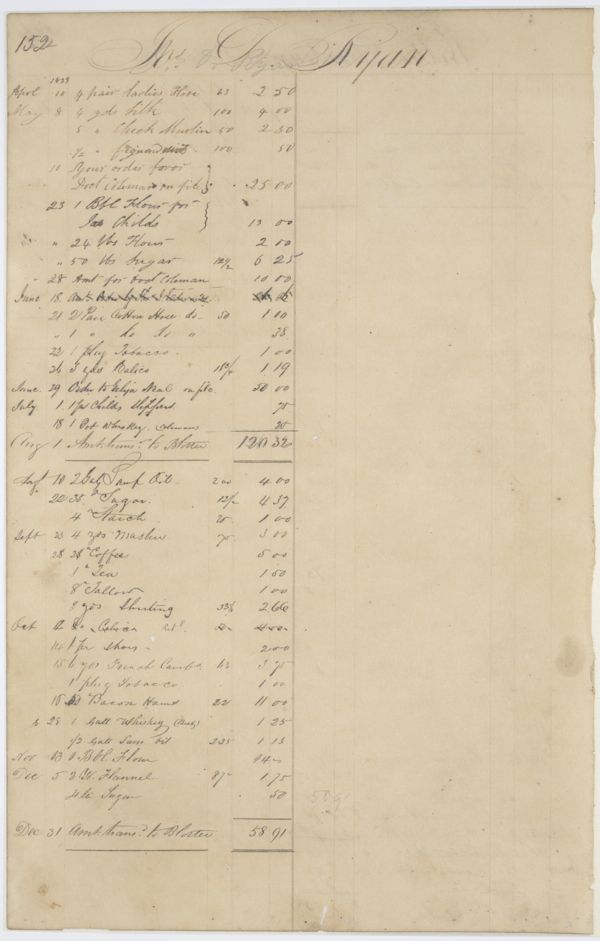 152
Ryan
1833
April 10 4 pair Ladies Hose 63 2 50
May 8 4 yds Silk 100 4 00
5 " Check Muslin 50 2 50
1/2 " 100 50
10 Your order favor
Doct Coleman on file 25 00
23 1 Bbl Flour for
Jas Childs 13 00
" 24 lbs Flour 2 00
" 50 lbs Sugar 12 1/2 6 25
" 28 Amt for Doct Coleman 10 00
June 18
21 2 Pair Cotton Hose do 50 1 00
" 1 " do do " 38
22 1 plug Tobacco 1 00
26 yds Calico 1 19
June 29 Order to Neal on file 50 00
July 1 1 pr Childs 75
18 1 Pot Whiskey Coleman 25
Aug 1 Amt trans.d to Blotter 120 32
Aug 10 2 Galls Lamp Oil 200 4 00
20 35 " Sugar 12 1/2 4 37
4 " Starch 25 1 00
Sept 23 4 yds Muslin 75 3 00
28 " Coffee 5 00
1 " Tea 1 50
8 " Tallow 1 00
8 yds Shirting 33 1/3 2 66
Oct 12 " Calico
14 1 pr Shoes " 2 00
15 6 yds French Cambc 63 3 75
1 plug Tobacco 1 00
18 50 Bacon Hams 22 11 00
" 29 1 Gall Whiskey 1 25
1/2 Gall Oil 225 1 13
Nov 13 Bbl Flour 14 "
Dec 5 2 W. Flannel 87 1 75
4 lb Sugar 50
58 91
Dec 31 Amt trans.d to Blotter 58 91